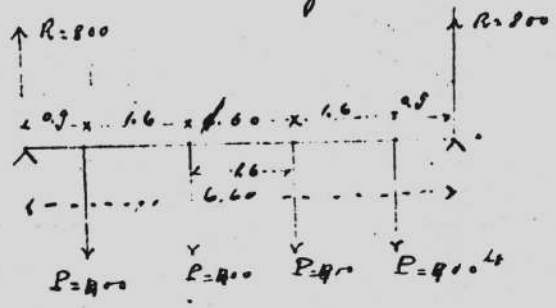 R=800 R=800
0.9 1.6 1.60 1.6 0.9
1.6
6.60
P=400 P=400 P=400 P=400 kg